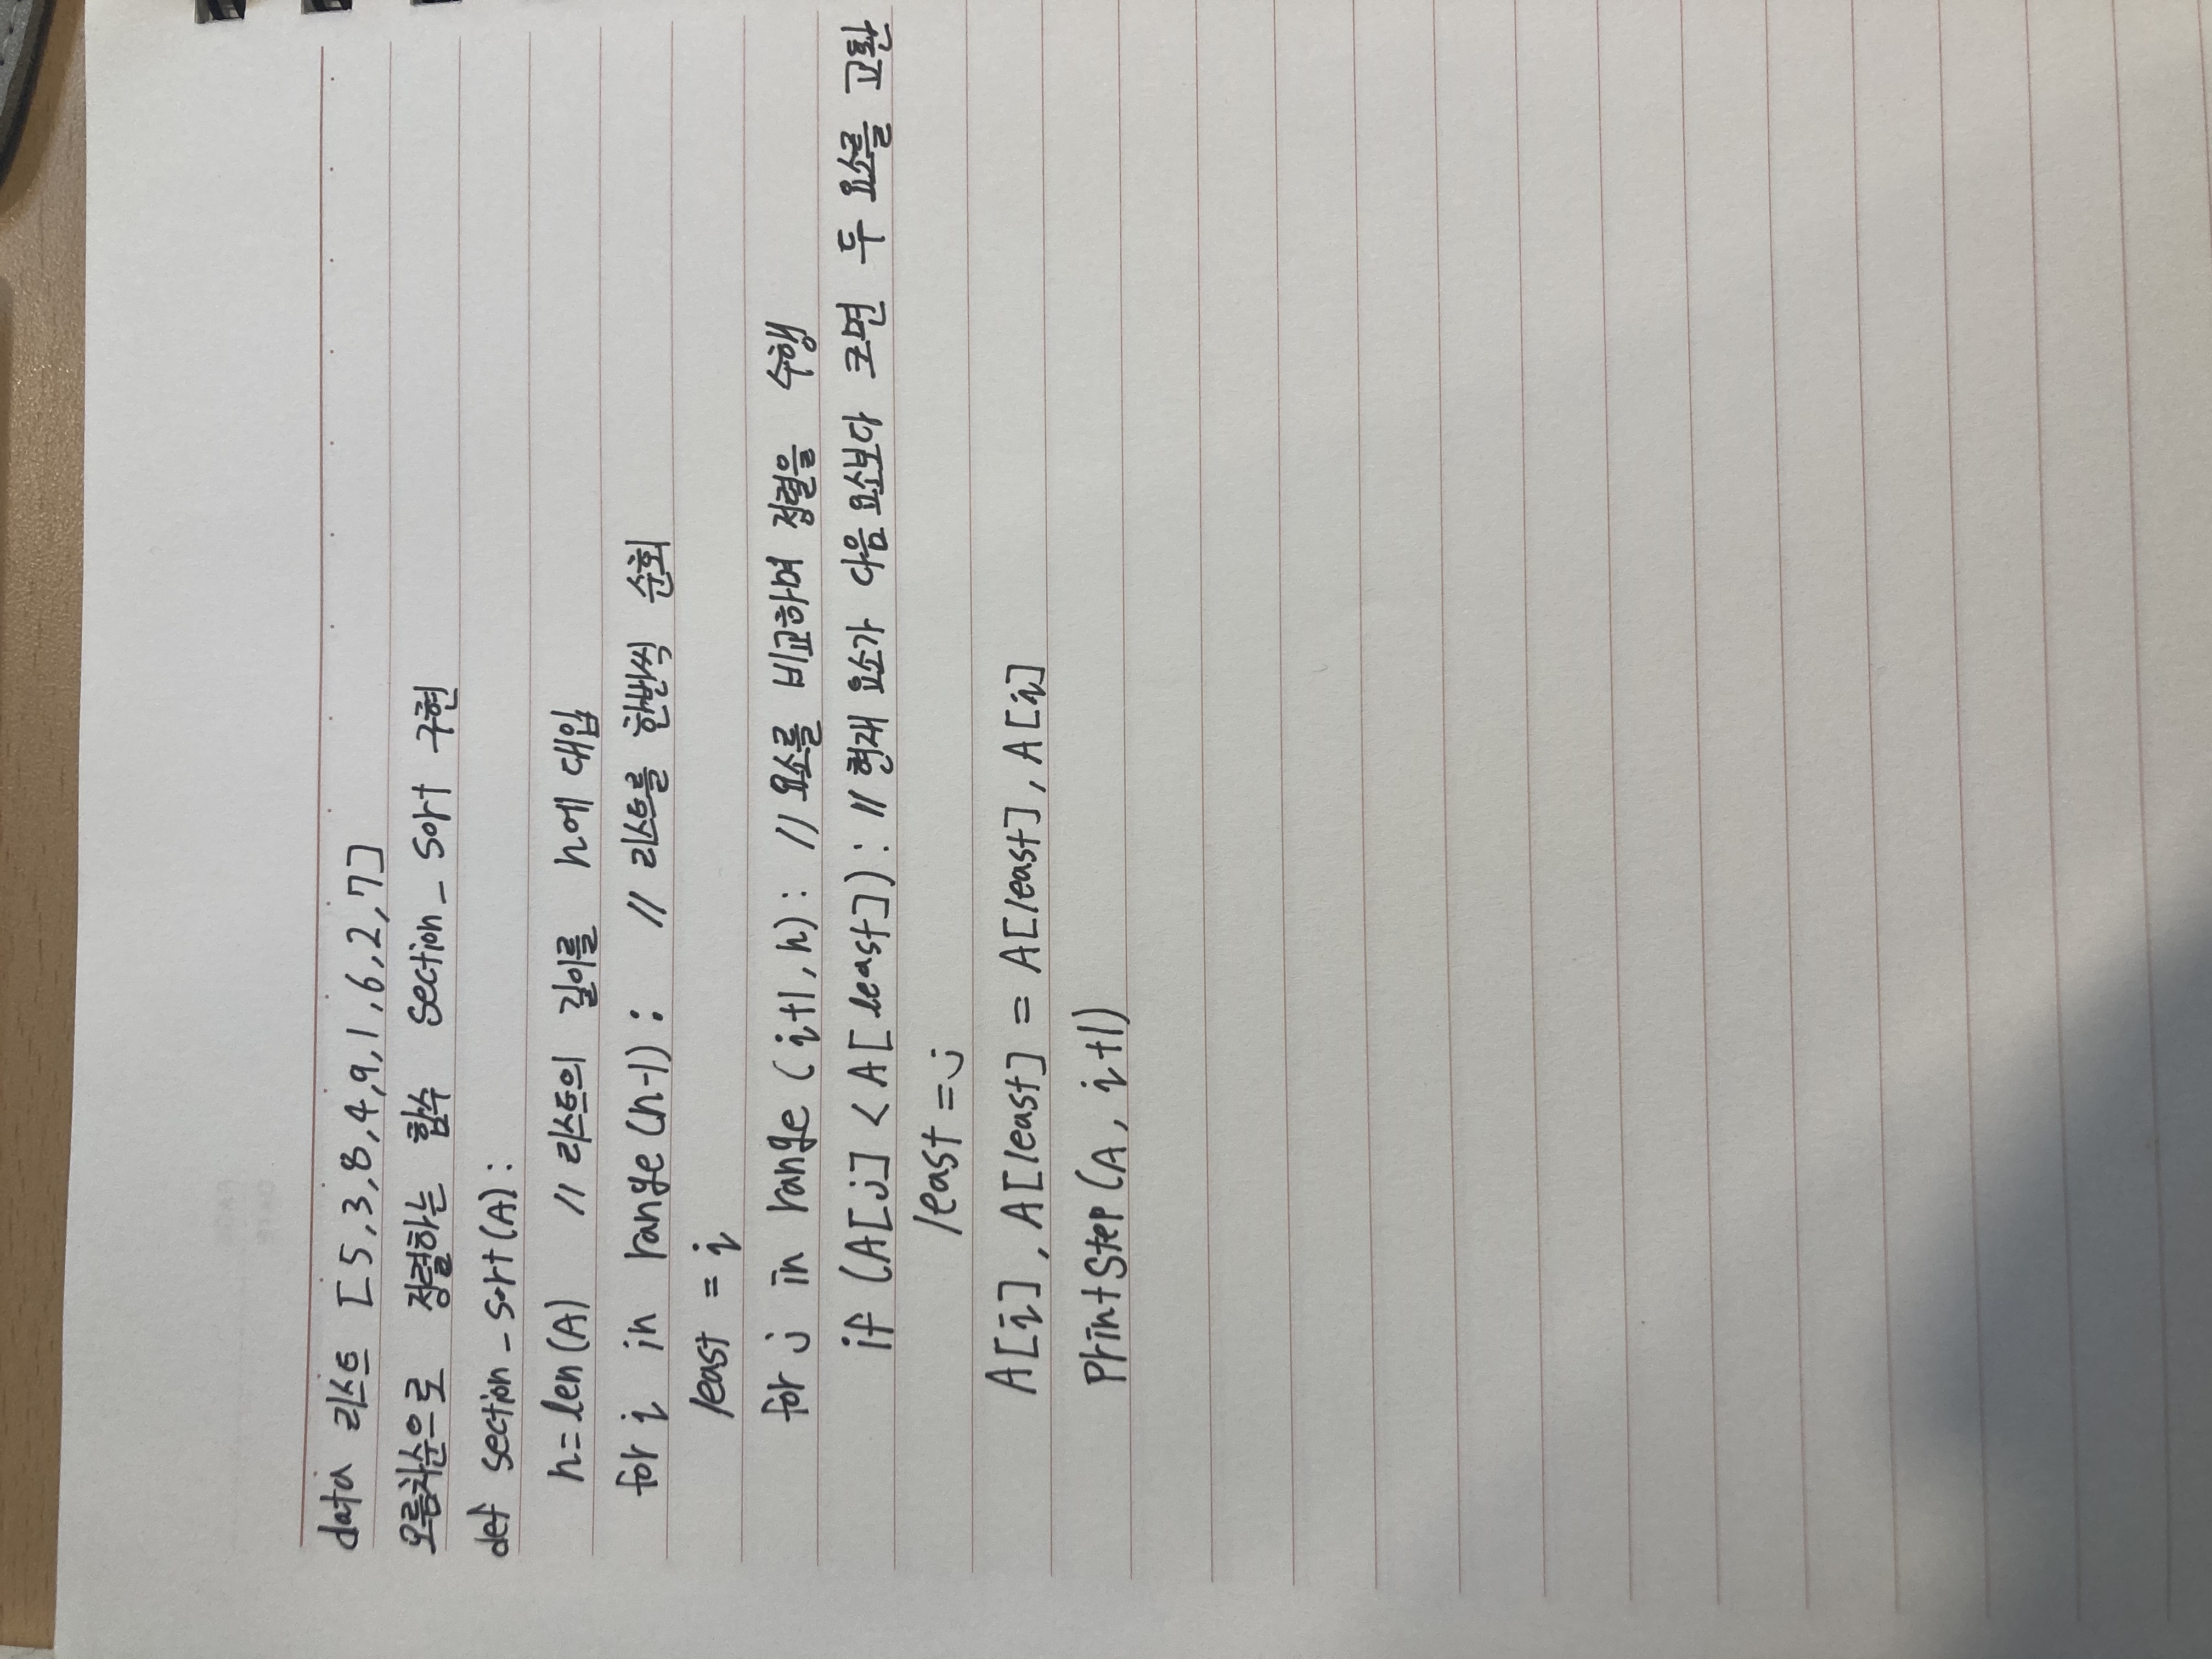 data 리스트 [5,3,8,4,9,1,6,2,7]
오름차순으로 정렬하는 함수 section_sort 구현
def section_sort(A):
n=len(A) // 리스트의 길이를 n에 대입
for i in range(n-1): // 리스트를 한번씩 순회
least = i
for j in range (i+1, n): // 요소를 비교하며 정렬을 수행
if (A[j] < A[least]): // 현재 요소가 다음 요소보다 크면 두 요소를 교환
least = j
A[i], A[least] = A[least], A[i]
PrintStep(A, i+1)